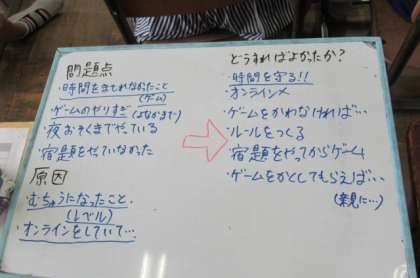 問題点
・時間をまもれなかったこと
(ゲーム)
・ゲームのやりすぎ(よなかまで)
・夜おそくまでやっている
・宿題をやっていなかった
原因
・むちゅうになったこと。
(レベル)
・オンラインをしていて…
どうすればよかったか?
・時間を守る!!
・オンライン×
・ゲームをかわなければ…
・ルールをつくる
・宿題をやってからゲーム
・ゲームをかくしてもらえば…
(親に…)